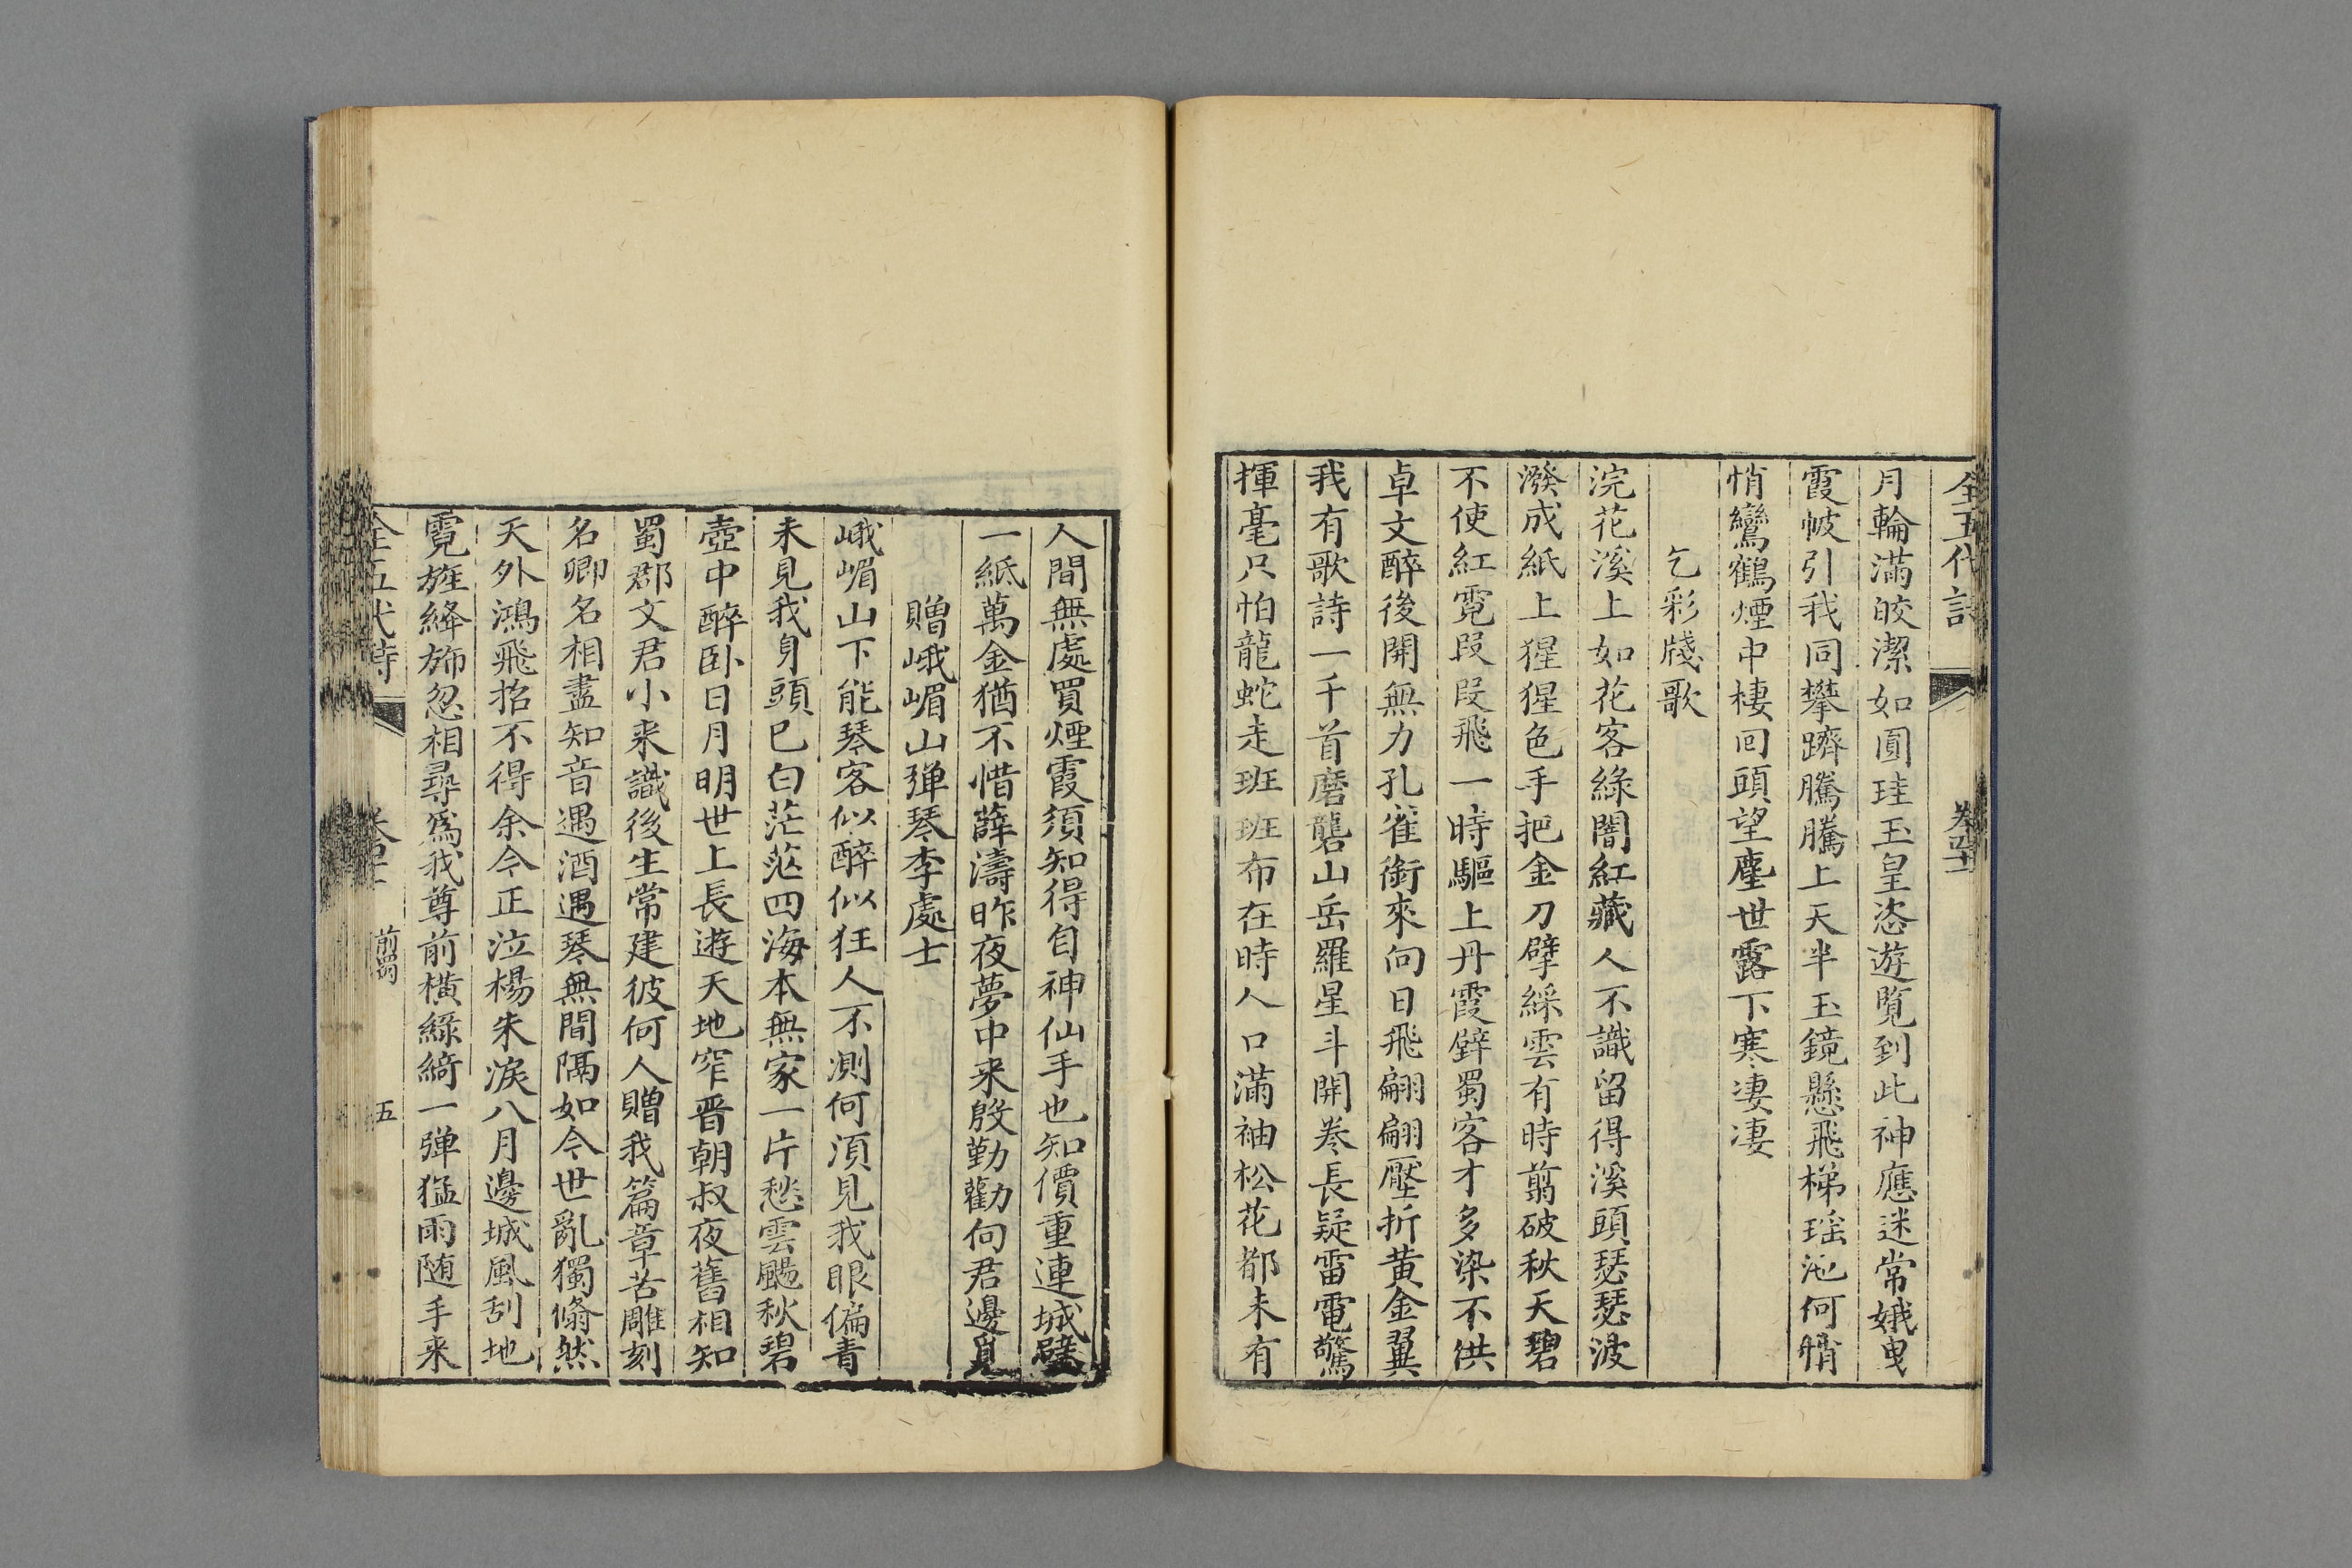 全五代詩
月輪滿皎潔如圓珪玉皇恣遊覧到此神應迷常娥曳
霞帔引我同攀躋騰騰上天半玉鏡懸飛梯瑶池何悄
悄鸞鶴煙中棲囘頭望塵世露下寒凄凄
乞彩牋歌
浣花溪上如花客綠闇紅藏人不識留得溪頭瑟瑟波
潑成紙上猩猩色手把金刀擘綵雲有時翦破秋天碧
不使紅霓段段飛一時驅上丹霞壁蜀客才多染不供
卓文醉後開無力孔雀銜來向日飛翩翩壓折黄金翼
我有歌詩一千首磨礱山岳羅星斗開卷長疑雷電驚
揮毫只怕龍蛇走班班布在時人口滿袖松花都未有
人間無處買煙霞須知得自神仙手也知價重連城壁
一紙萬金猶不惜薛濤昨夜夢中来殷勤勸向君邊覓
贈峨嵋山弹琴李處士
峨嵋山下能琴客似醉似狂人不測何湏見我眼偏青
未見我身頭已白茫茫四海本無家一片愁雲颺秋碧
壺中醉卧日月明世上長遊天地窄晋朝叔夜舊相知
蜀郡文君小来識後生常建彼何人贈我篇章苦雕刻
名卿名相盡知音遇酒遇琴無間隔如今世亂獨翛然
天外鴻飛招不得余今正泣楊朱淚八月邊城風刮地
霓旌絳斾忽相尋為我尊前横綠綺一弹猛雨随手来
全五代詩
前蜀
五